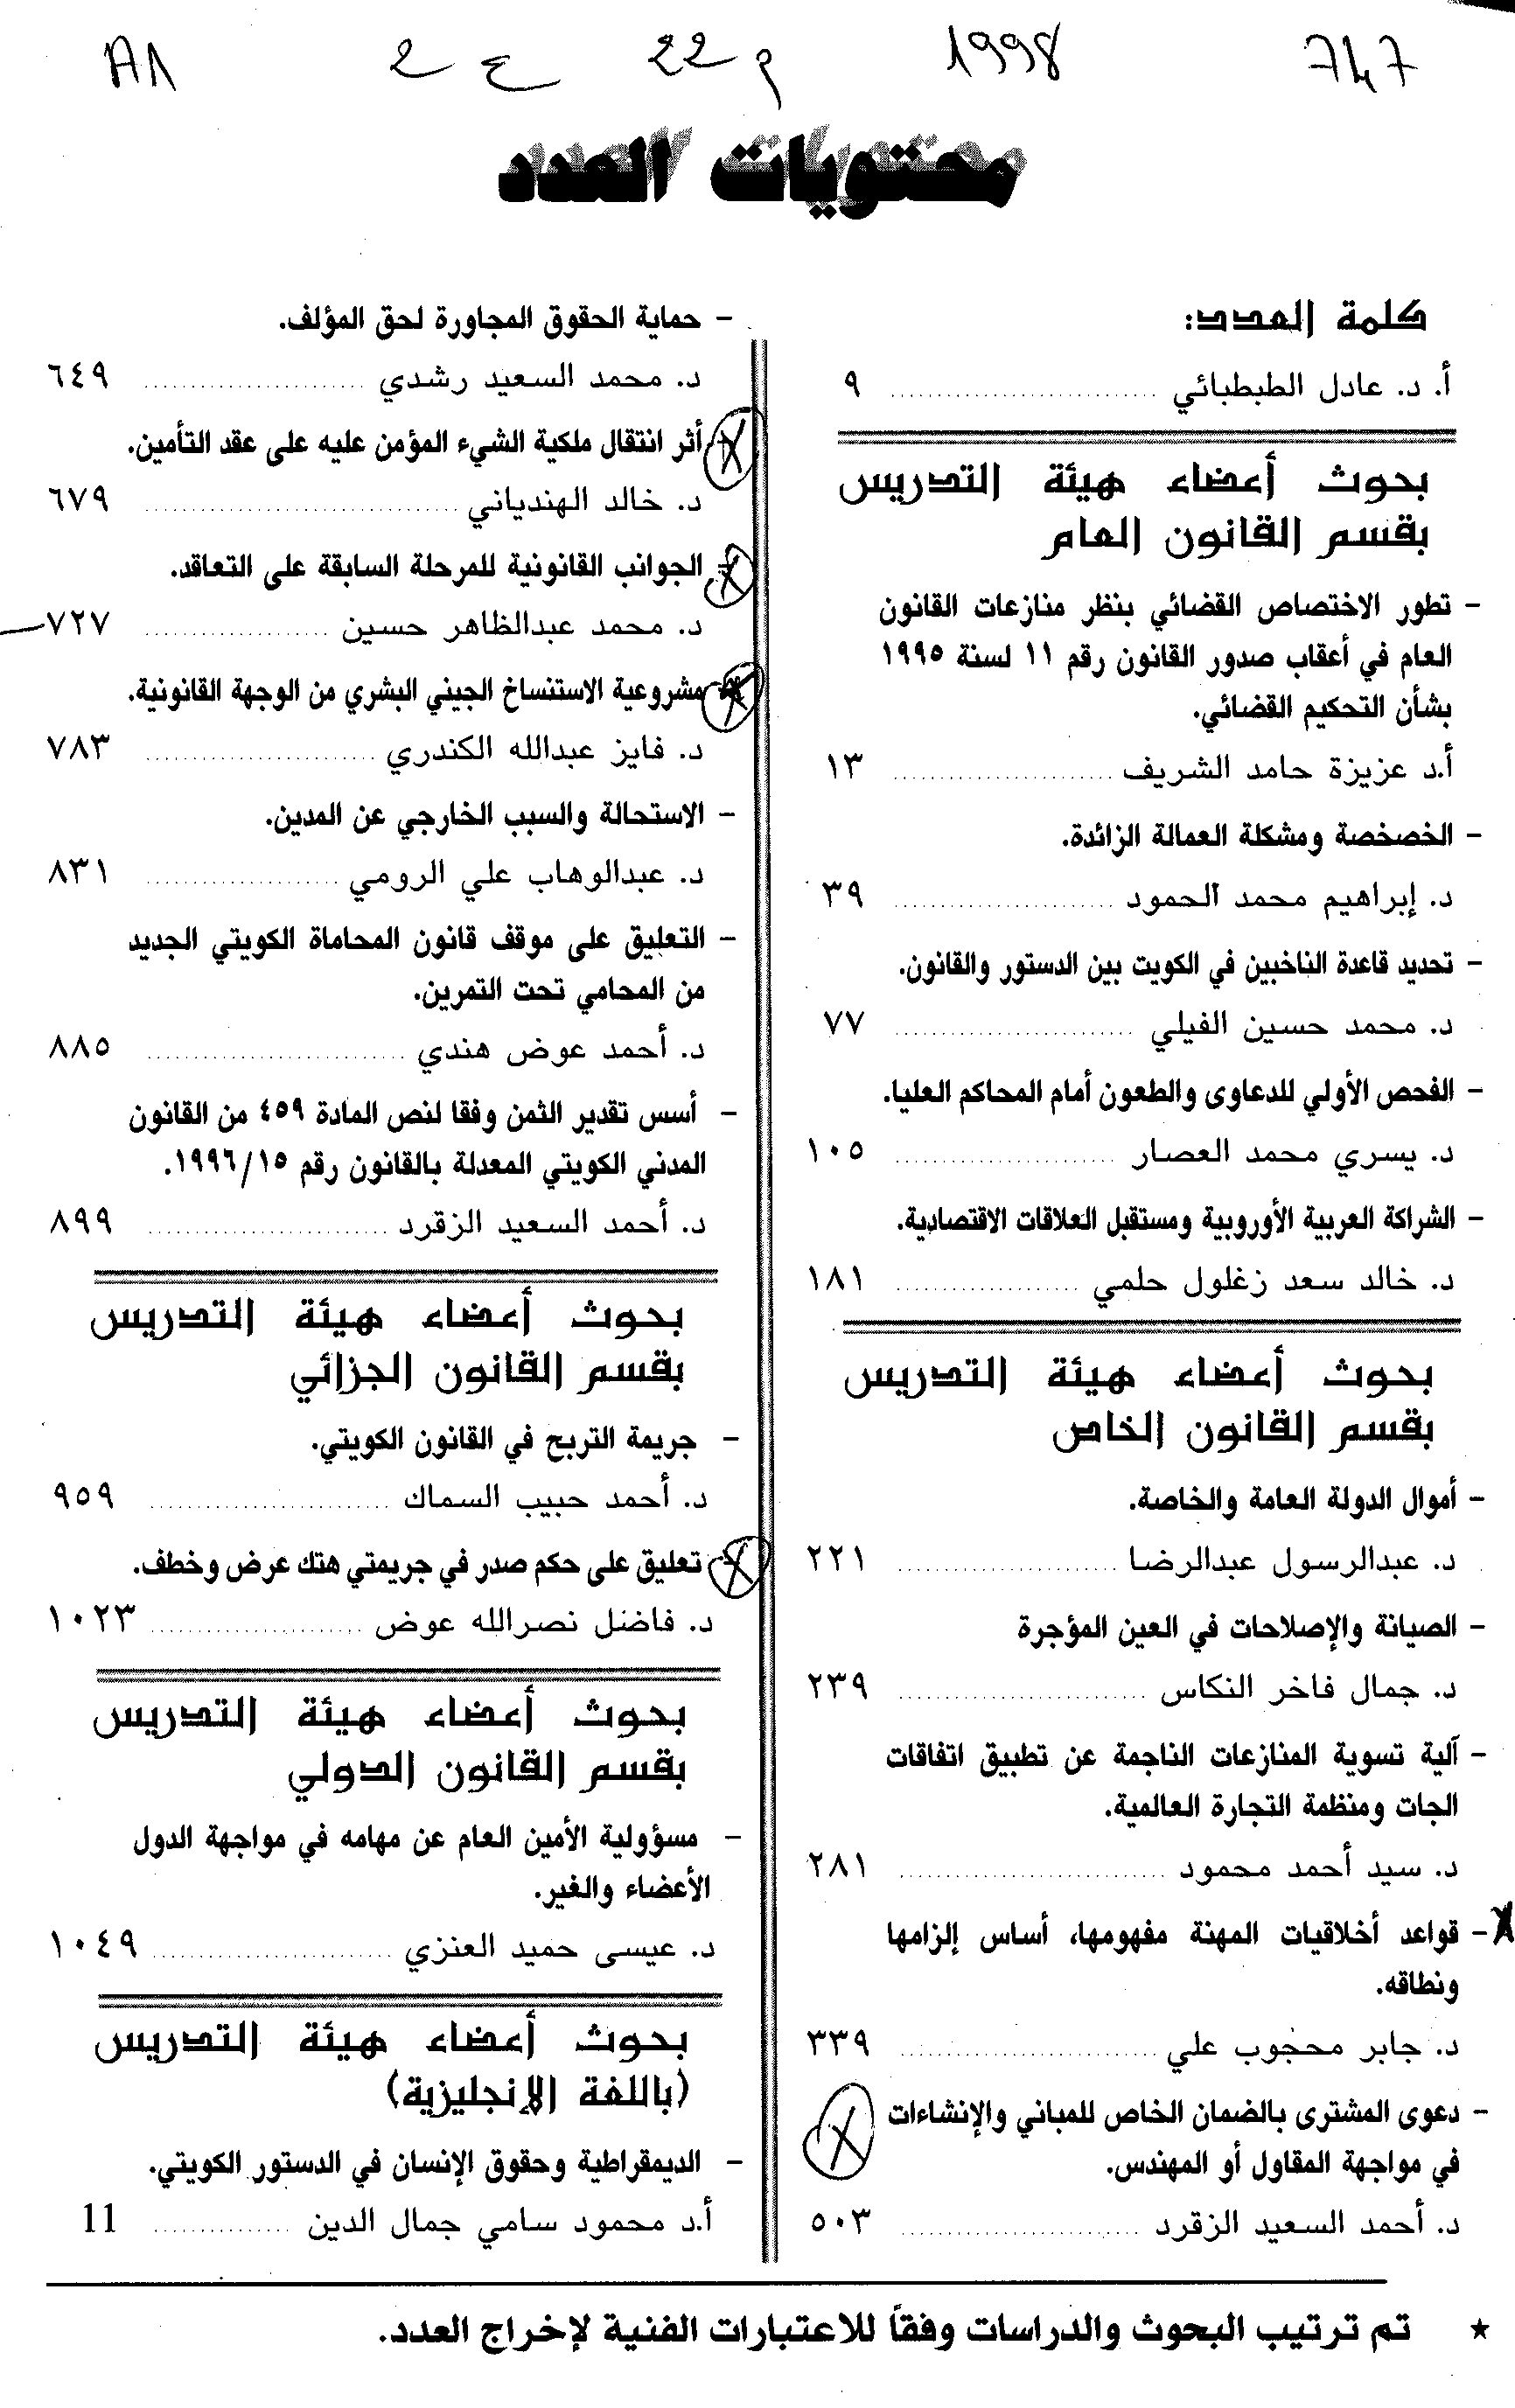 747 1998 م 22 ع 2 A1
محتويات العدد
كلمة العدد:
أ. د. عادل الطبطبائي ٩
بحوث أعضاء هيئة التدريس
بقسم القانون العام
- تطور الاختصاص القضائي بنظر منازعات القانون
العام في أعقاب صدور القانون رقم ١١ لسنة ١٩٩٥
بشأن التحكيم القضائي.
أ.د عزيزة حامد الشريف ١٣
- الخصخصة ومشكلة العمالة الزائدة.
د. إبراهيم محمد الحمود ٣٩
- تحديد قاعدة الناخبين في الكويت بين الدستور والقانون.
د. محمد حسين الفيلي ٧٧
- الفحص الأولي للدعاوى والطعون أمام المحاكم العليا.
د. يسري محمد العصار ١٠٥
- الشراكة العربية الأوروبية ومستقبل العلاقات الاقتصادية.
د. خالد سعد زغلول حلمي ١٨١
بحوث أعضاء هيئة التدريس
بقسم القانون الخاص
- أموال الدولة العامة والخاصة.
د. عبدالرسول عبدالرضا ٢٢١
- الصيانة والإصلاحات في العين المؤجرة
د. جمال فاخر النكاس ٢٣٩
- آلية تسوية المنازعات الناجمة عن تطبيق اتفاقات
الجات ومنظمة التجارة العالمية.
د. سيد أحمد محمود ٢٨١
- قواعد أخلاقيات المهنة مفهومها، أساس إلزامها
ونطاقه.
د. جابر محجوب علي ٣٣٩
- دعوى المشترى بالضمان الخاص للمباني والإنشاءات
في مواجهة المقاول أو المهندس.
د. أحمد السعيد الزقرد ٥٠٣
- حماية الحقوق المجاورة لحق المؤلف.
د. محمد السعيد رشدي ٦٤٩
- أثر انتقال ملكية الشيء المؤمن عليه على عقد التأمين.
د. خالد الهندياني ٦٧٩
- الجوانب القانونية للمرحلة السابقة على التعاقد.
د. محمد عبدالظاهر حسين ٧٢٧
- مشروعية الاستنساخ الجيني البشري من الوجهة القانونية.
د. فايز عبدالله الكندري ٧٨٣
- الاستحالة والسبب الخارجي عن المدين.
د. عبدالوهاب علي الرومي ٨٣١
- التعليق على موقف قانون المحاماة الكويتي الجديد
من المحامي تحت التمرين.
د. أحمد عوض هندي ٨٨٥
- أسس تقدير الثمن وفقا لنص المادة ٤٥٩ من القانون
المدني الكويتي المعدلة بالقانون رقم ١٩٩٦/١٥.
د. أحمد السعيد الزقرد ٨٩٩
بحوث أعضاء هيئة التدريس
بقسم القانون الجزائي
- جريمة التربح في القانون الكويتي.
د. أحمد حبيب السماك ٩٥٩
- تعليق على حكم صدر في جريمتي هتك عرض وخطف.
د. فاضل نصرالله عوض ١٠٢٣
بحوث أعضاء هيئة التدريس
بقسم القانون الدولي
- مسؤولية الأمين العام عن مهامه في مواجهة الدول
الأعضاء والغير.
د. عيسى حميد العنزي ١٠٤٩
بحوث أعضاء هيئة التدريس
(باللغة الإنجليزية)
- الديمقراطية وحقوق الإنسان في الدستور الكويتي.
أ.د محمود سامي جمال الدين 11
★ تم ترتيب البحوث والدراسات وفقاً للاعتبارات الفنية لإخراج العدد.